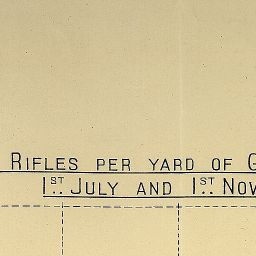 RIFLES PER YARD OF G
1ST JULY AND 1ST NOV